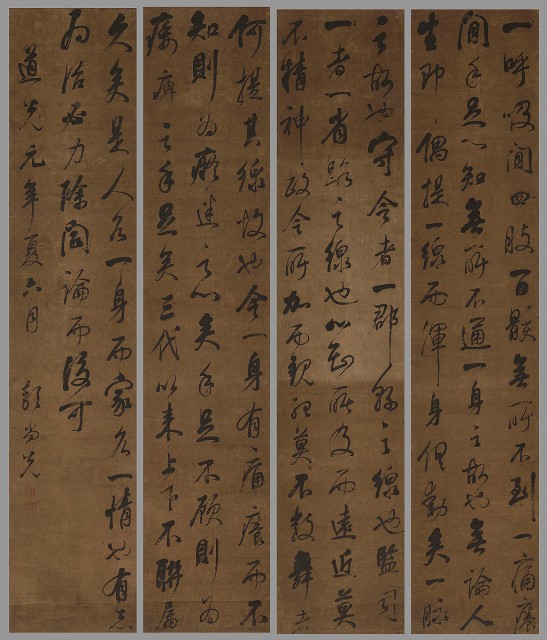 一呼吸間四肢百骸無所不到一痛癢
間手足心知無所不通一身之故也無論人
生即偶提一線而渾身俱動矣一脉
之故也守令者一郡縣之線也監司
者一省路之線也心知所及而遠近莫
不精神政令所加而親莫不鼓舞者
何提其線故也令一身有痛癢而不
知則為癡迷之心矣手足不顧則為
痿痹之手足矣三代以來上下不聯屬
久矣是人各一身而家各一情也有志
為治必力除論而後可
道光元年夏六月 郭尚先